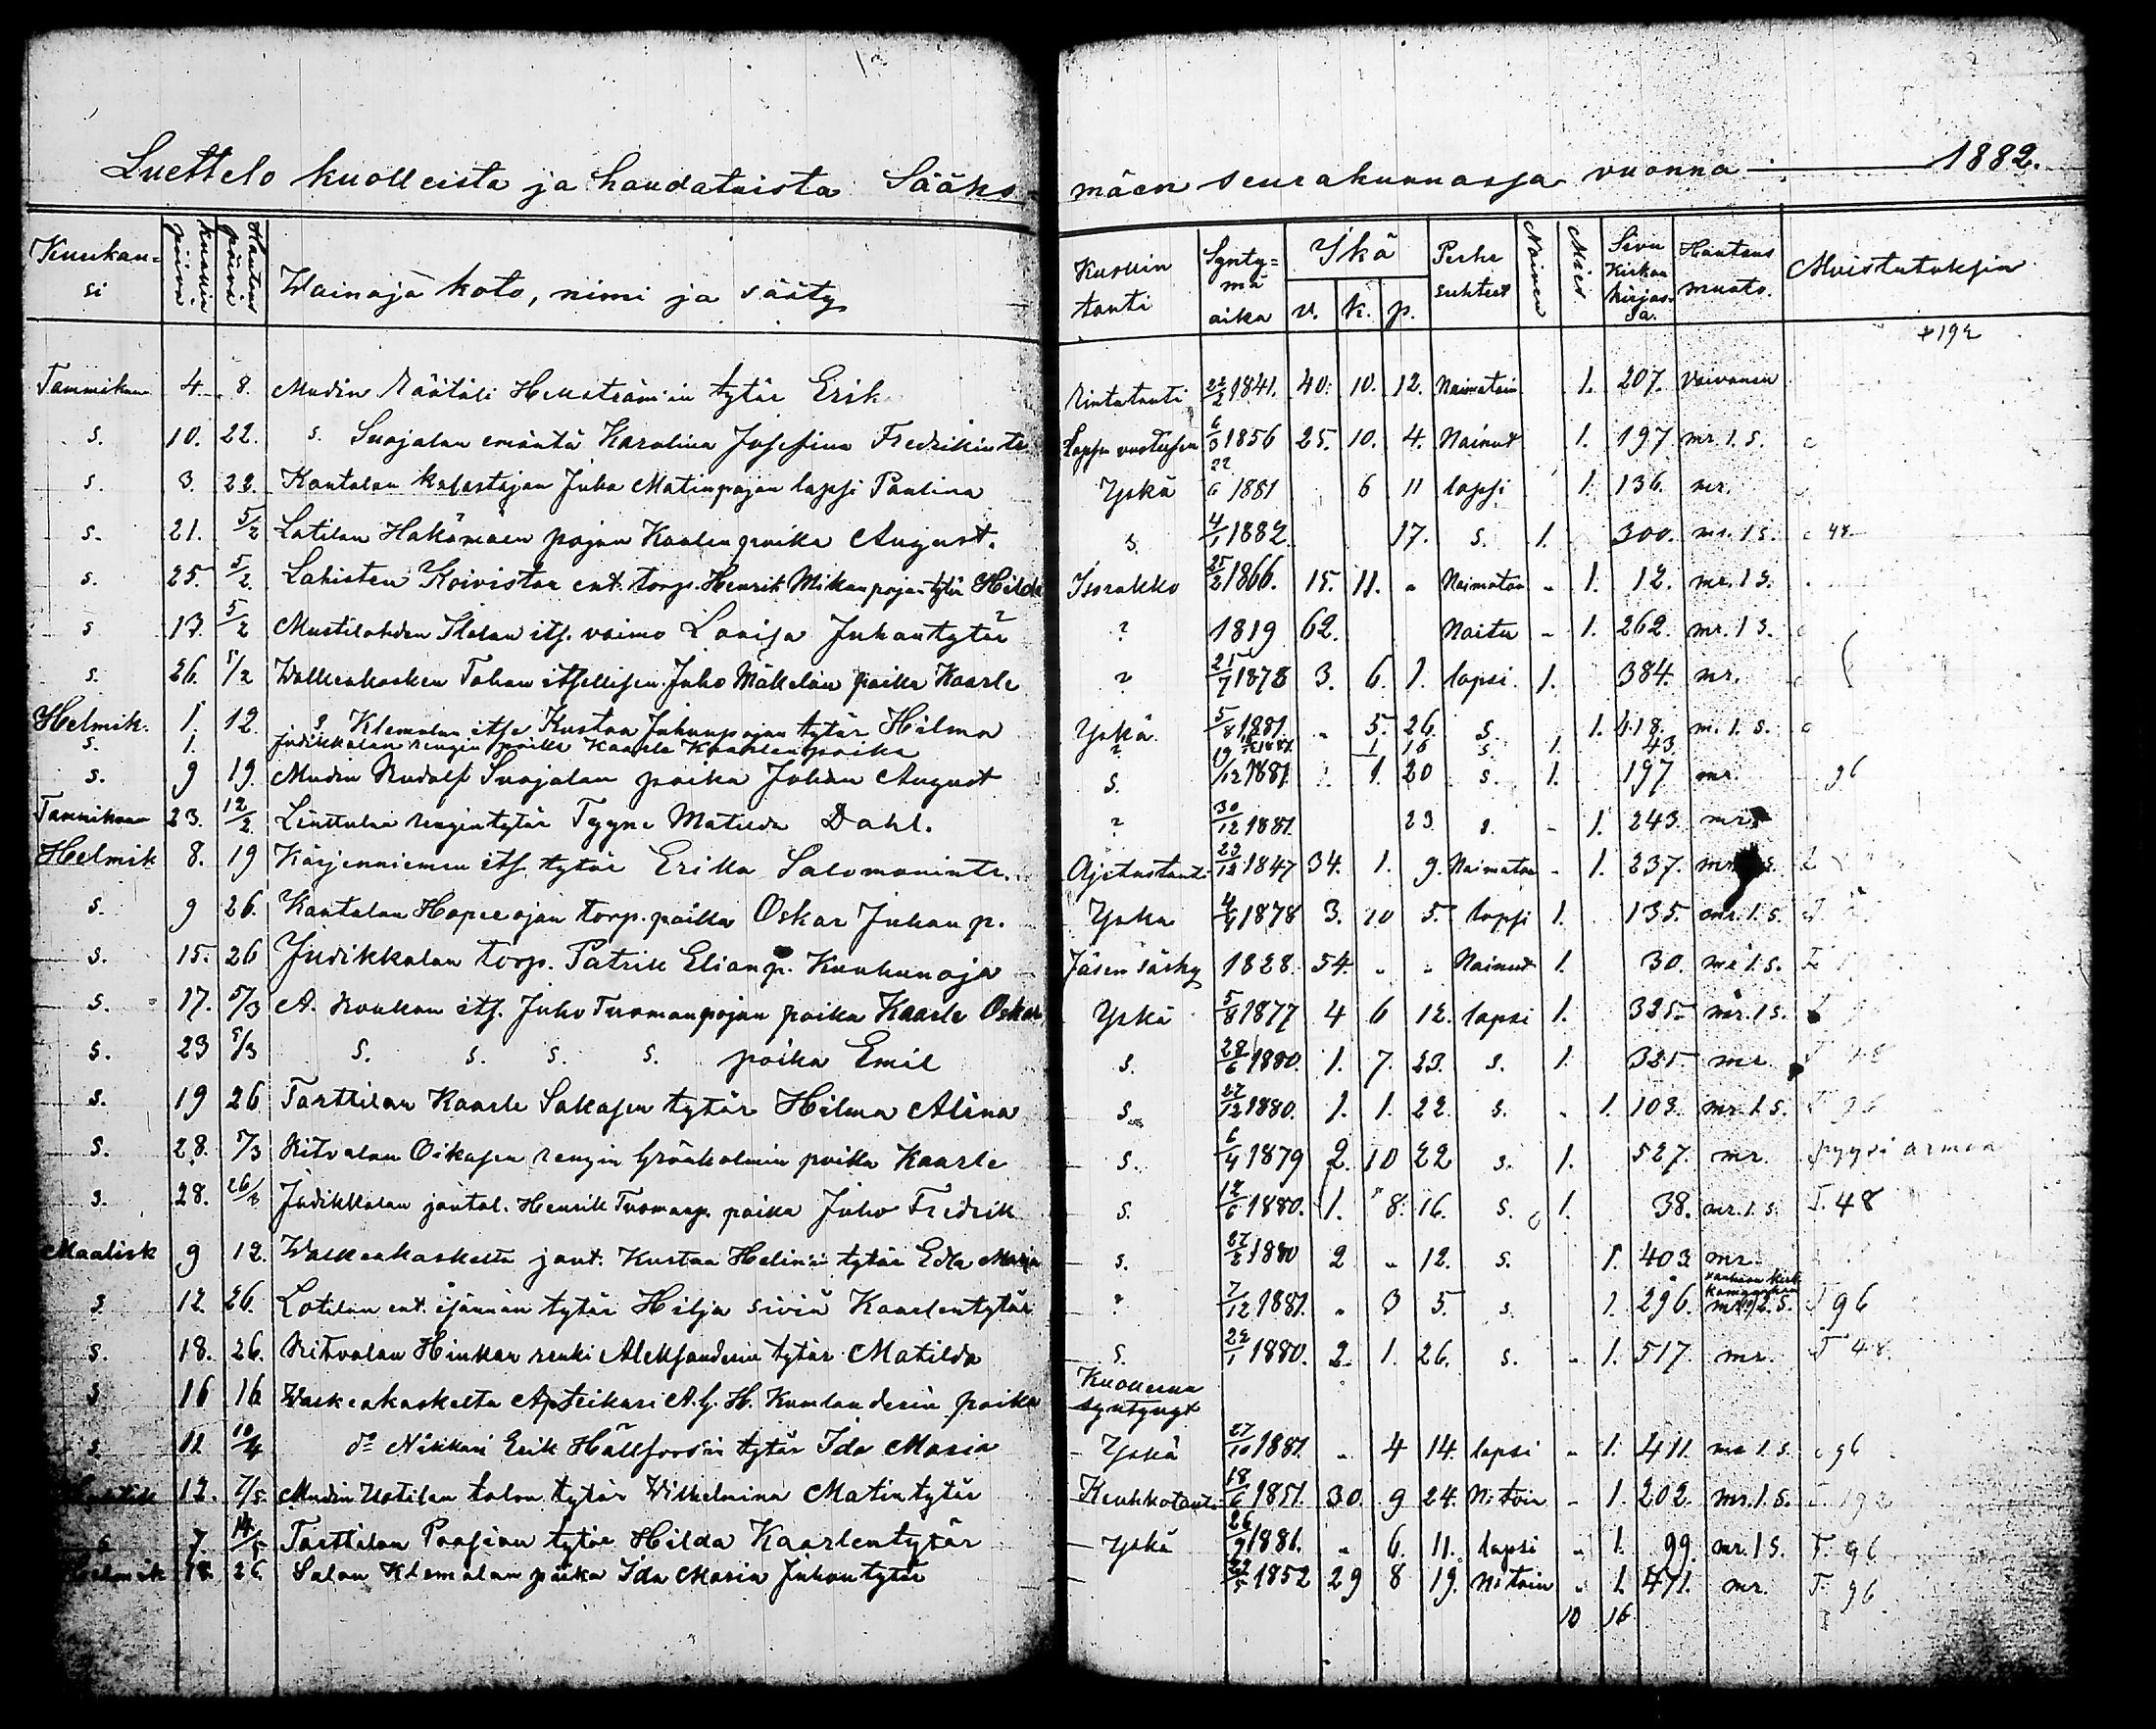 Luettelo kuolleista ja haudatuista Sääks-
mäen seurakunnassa vuonna 1882.
Kuukau=
si
kuollin
päivä
Hautaus
päivä
Wainaja koto, nimi ja sääty
Kuollin
tauti
Synty=
mä
aika
Ikä
v. k. p.
Perhe
suhteet
Nainen
Mies
Sivu
Kirkon
kirjas-
sa.
Hautaus
muoto.
Muistutuksia
+192
Tammikuu 4. 8. Mudin Räätäli Hellströmin tytär Erik Rintatauti 22/2 1841. 40. 10. 12. Naimatoin 1. 207. Vaivanen
s. 10. 22. s. Suojalan emäntä Karolina Josefina Fredrikintr. Lapsen vuoteesen 6/3 1856 25. 10. 4. Nainut 1. 197. mr. 1. s. c
s. 3. 22. Kantalan kalastajan Juha Matinpojan lapsi Paulina Yskä 22/6 1881 6 11 lapsi 1. 136. mr.
s. 21. 5/2 Lotilan Hakämäen pojan Kaalen poika August. s. 4/1 1882. 17. s. 1. 300. mr. 1 s. c 48
s. 25. 5/2 Lahisten Koiviston ent. torp. Henrik Mikanpojan tytär Hilda Isorokko 25/2 1866. 15. 11. " Naimaton - 1. 12. mr. 1 s.
s 17. 5/2 Mustilahden Ilolan its. vaimo Lovisa Juhantytär ? 1819 62. Naitu - 1. 262. mr. 1 s. c
s. 26. 5/2 Walkeakosken Tohan itsellisen Juho Mäkelän poika Kaarle ? 21/7 1878 3. 6. 1. lapsi. 1. 384. mr.
Helmik. 1. 12. s Klemolan itse Kustaa Juhanpojan tytär Hilma Yskä 5/8 1881. " 5. 26. s. 1. 418. m. 1. s. c
s. 1. Judikkalan rengin poika Kaarle Kaarlenpoika ? 1881. 1 16 s. 1. 43.
s. 9 19. Mudin Rudolf Suojalan poika Johan August s. 19/12 1881. 1. 20 s. 1. 197 mr. 96
Tammikuu 23. 12/2. Linttulan rengintytär Tyyne Matilda Dahl. ? 30/12 1881. 23. s. - 1. 243. mr.
Helmik 8. 19 Kärjenniemen its tytär Erika Salomonintr. Ajetustauti 29/12 1847 34. 1. 9. Naimaton - 1. 237.
s. 9 26. Kantalan Hopeeojan torp. poika Oskar Juhan p. Yskä 4/4 1878 3. 10 5. lapsi 1. 135. mr. 1. s.
s. 15. 26 Judikkalan torp. Patrik Elianp. Kuuhunoja Jäsen särky 1828. 54. " " Nainut 1. 30. mr 1. s.
s. 17. 5/3 A. Konkan its. Juho Tuomaanpojan poika Kaarle Oskar Yskä 5/8 1877 4 6 12. lapsi 1. 325. mr. 1 s.
s. 23 5/3 s. s. s. s. poika Emil s. 28/6 1880. 1. 7. 23. s. 1. 325 mr T 48
s. 19 26 Tarttilan Kaarle Sakasen tytär Hilma Alina s. 27/12 1880. 1. 1. 22. s. - 1. 103. mr. 1. s. T 96
s. 28. 5/3 Ritvalan Oikasen rengin Grönholmin poika Kaarle s. 6/4 1879 2. 10 22 s. 1. 527. mr. pyysi armoa
s. 28. 26/3 Judikkalan jäntal. Henrik Tuomanp. poika Juho Fredrik s. 12/6 1880. 1. 8. 16. s. 1. 38. mr. 1. s. T. 48
Maalisk 9 12. Walkeakoskelta jant. Kustaa Helinin tytär Edla Maria s. 27/2 1880 2 " 12. s. 1. 403 mr.
s. 12. 26. Lotilan ent. isännän tytär Hilja siviä Kaarlentytär ? 7/12 1881. " 3 5. s. 1. 296. T 96
s. 18. 26. Ritvalan Hinkan renki Aleksanderin tytär Matilda s. 22/1 1880. 2. 1. 26. s. - 1. 517. mr. T 48.
s 16 16 Walkeakoskelta Apteikari A. G. H. Kumlanderin poika Kuolleena
syntynyt
s. 12 10/4 do Nikkari Erik Hällforsin tytär Ida Maria Yskä 27/10 1881. " 4 14. lapsi " 1. 411. mr 1. s. c 96
Huhtik 12. 7/5. Mudin Uotilan talon tytär Wilhelmina Matintytär Keuhkotauti 18/6 1851. 30. 9 24. N:toin - 1. 202. mr. 1. s. T. 192
s 7 14/5 Tarttilan Paasion tytär Hilda Kaarlentytär Yskä 26/9 1881. " 6. 11. lapsi " 1. 99. mr. 1 s. T. 96
Helmik 18. 26. Salan Klemolan piika Ida Maria Juhantytär 1852 29 8 19. N:toin " 1. 471. mr. T. 96
10 16